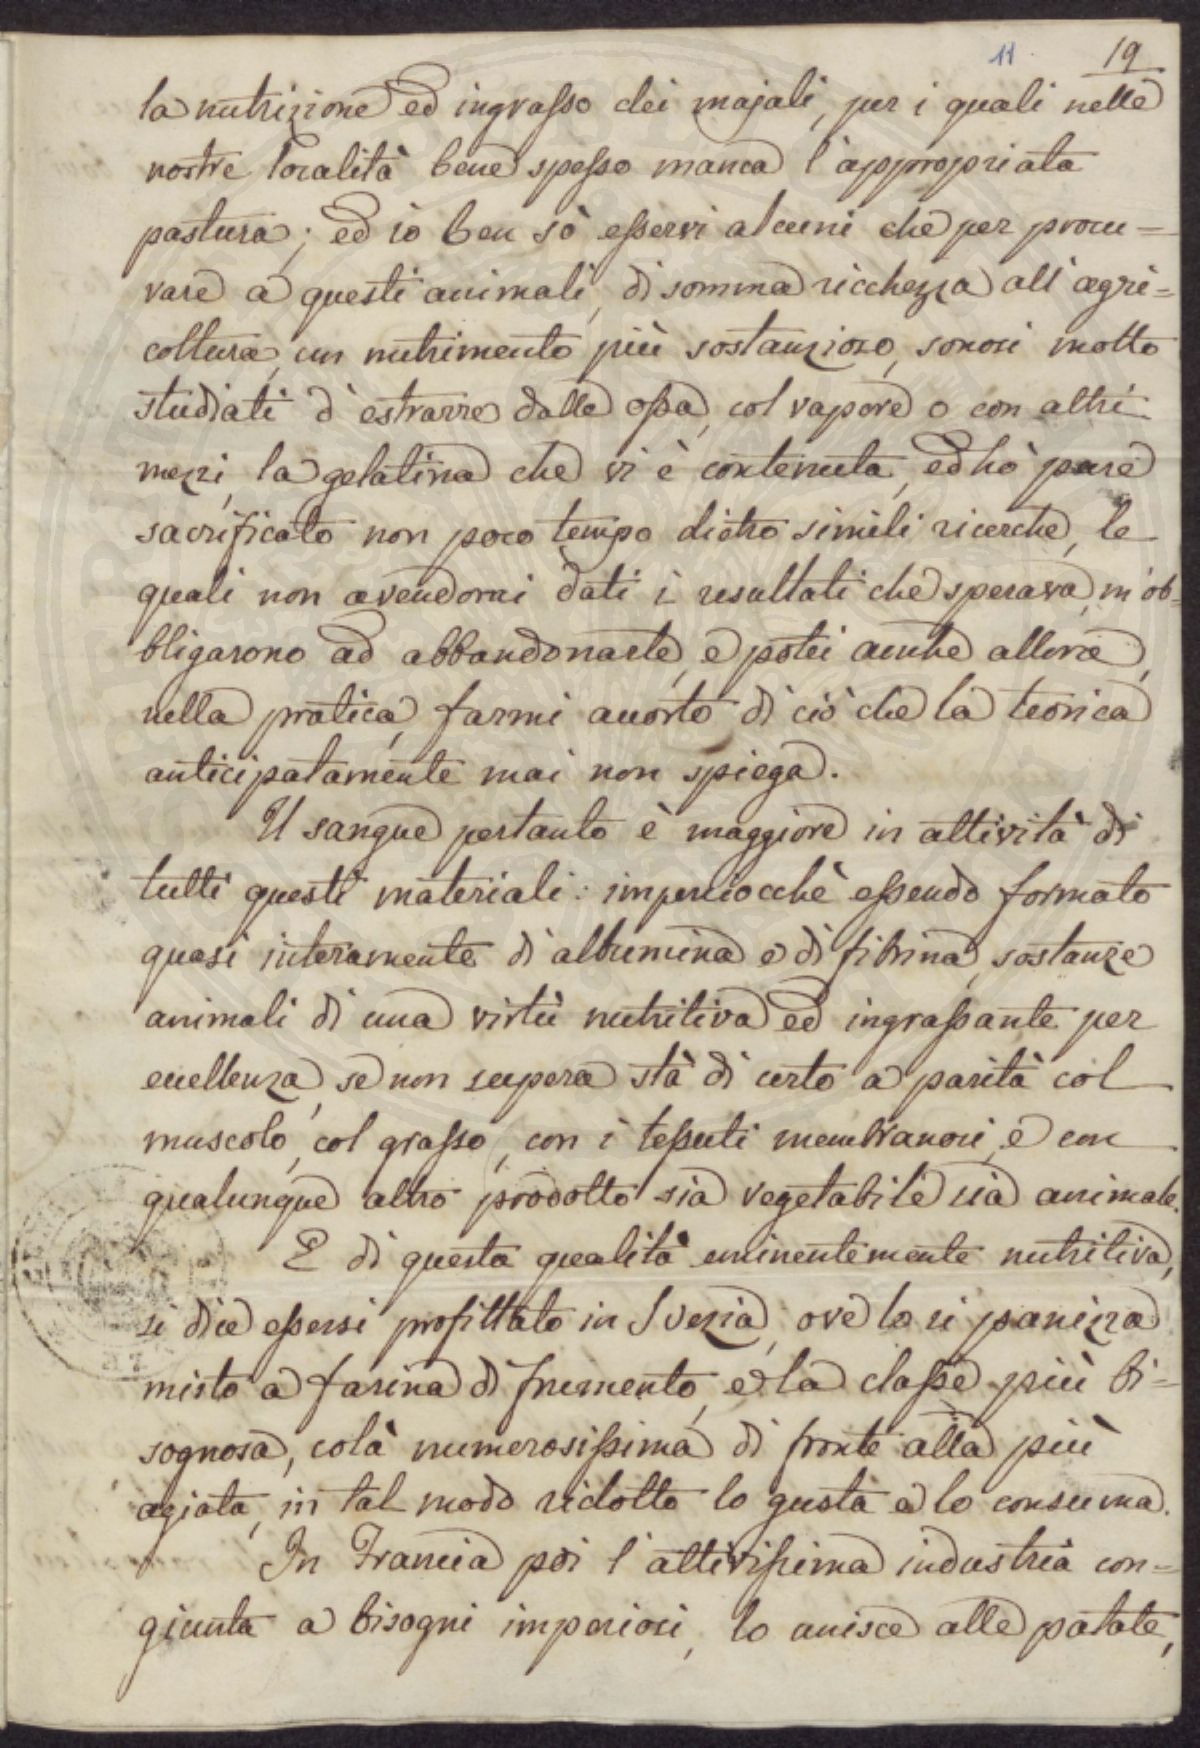 11 19
la nutrizione ed ingrasso dei majali, per i quali nelle
nostre località bene spesso manca l'appropriata
pastura; ed io ben sò esservi alcuni che per procu=
rare a questi animali, di somma ricchezza all'agri=
coltura, un nutrimento più sostanzioso, sonosi molto
studiati d'estrarre dalle ossa, col vapore o con altri
mezzi, la gelatina che vi è contenuta, ed hò pure
sacrificato non poco tempo dietro simili ricerche, le
quali non avendomi dati i resultati che sperava, m'ob=
bligarono ad abbandonarle, e potei anche allora,
nella pratica, farmi accorto di ciò che la teorica
anticipatamente mai non spiega.
Il sangue pertanto è maggiore in attività di
tutti questi materiali: imperciocchè essendo formato
quasi interamente di albumina e di fibrina, sostanze
animali di una virtù nutritiva ed ingrassante per
eccellenza, se non supera stà di certo a parità col
muscolo, col grasso, con i tessuti membranosi, e con
qualunque altro prodotto sia vegetabile sia animale.
E di questa qualità eminentemente nutritiva,
si dice essersi profittato in Svezia, ove lo si panizza
misto a farina di frumento, e la classe più bi=
sognosa, colà numerosissima di fronte alla più
agiata, in tal modo ridotto lo gusta e lo consuma.
In Francia poi l'attivissima industria con=
giunta a bisogni imperiosi, lo unisce alle patate,